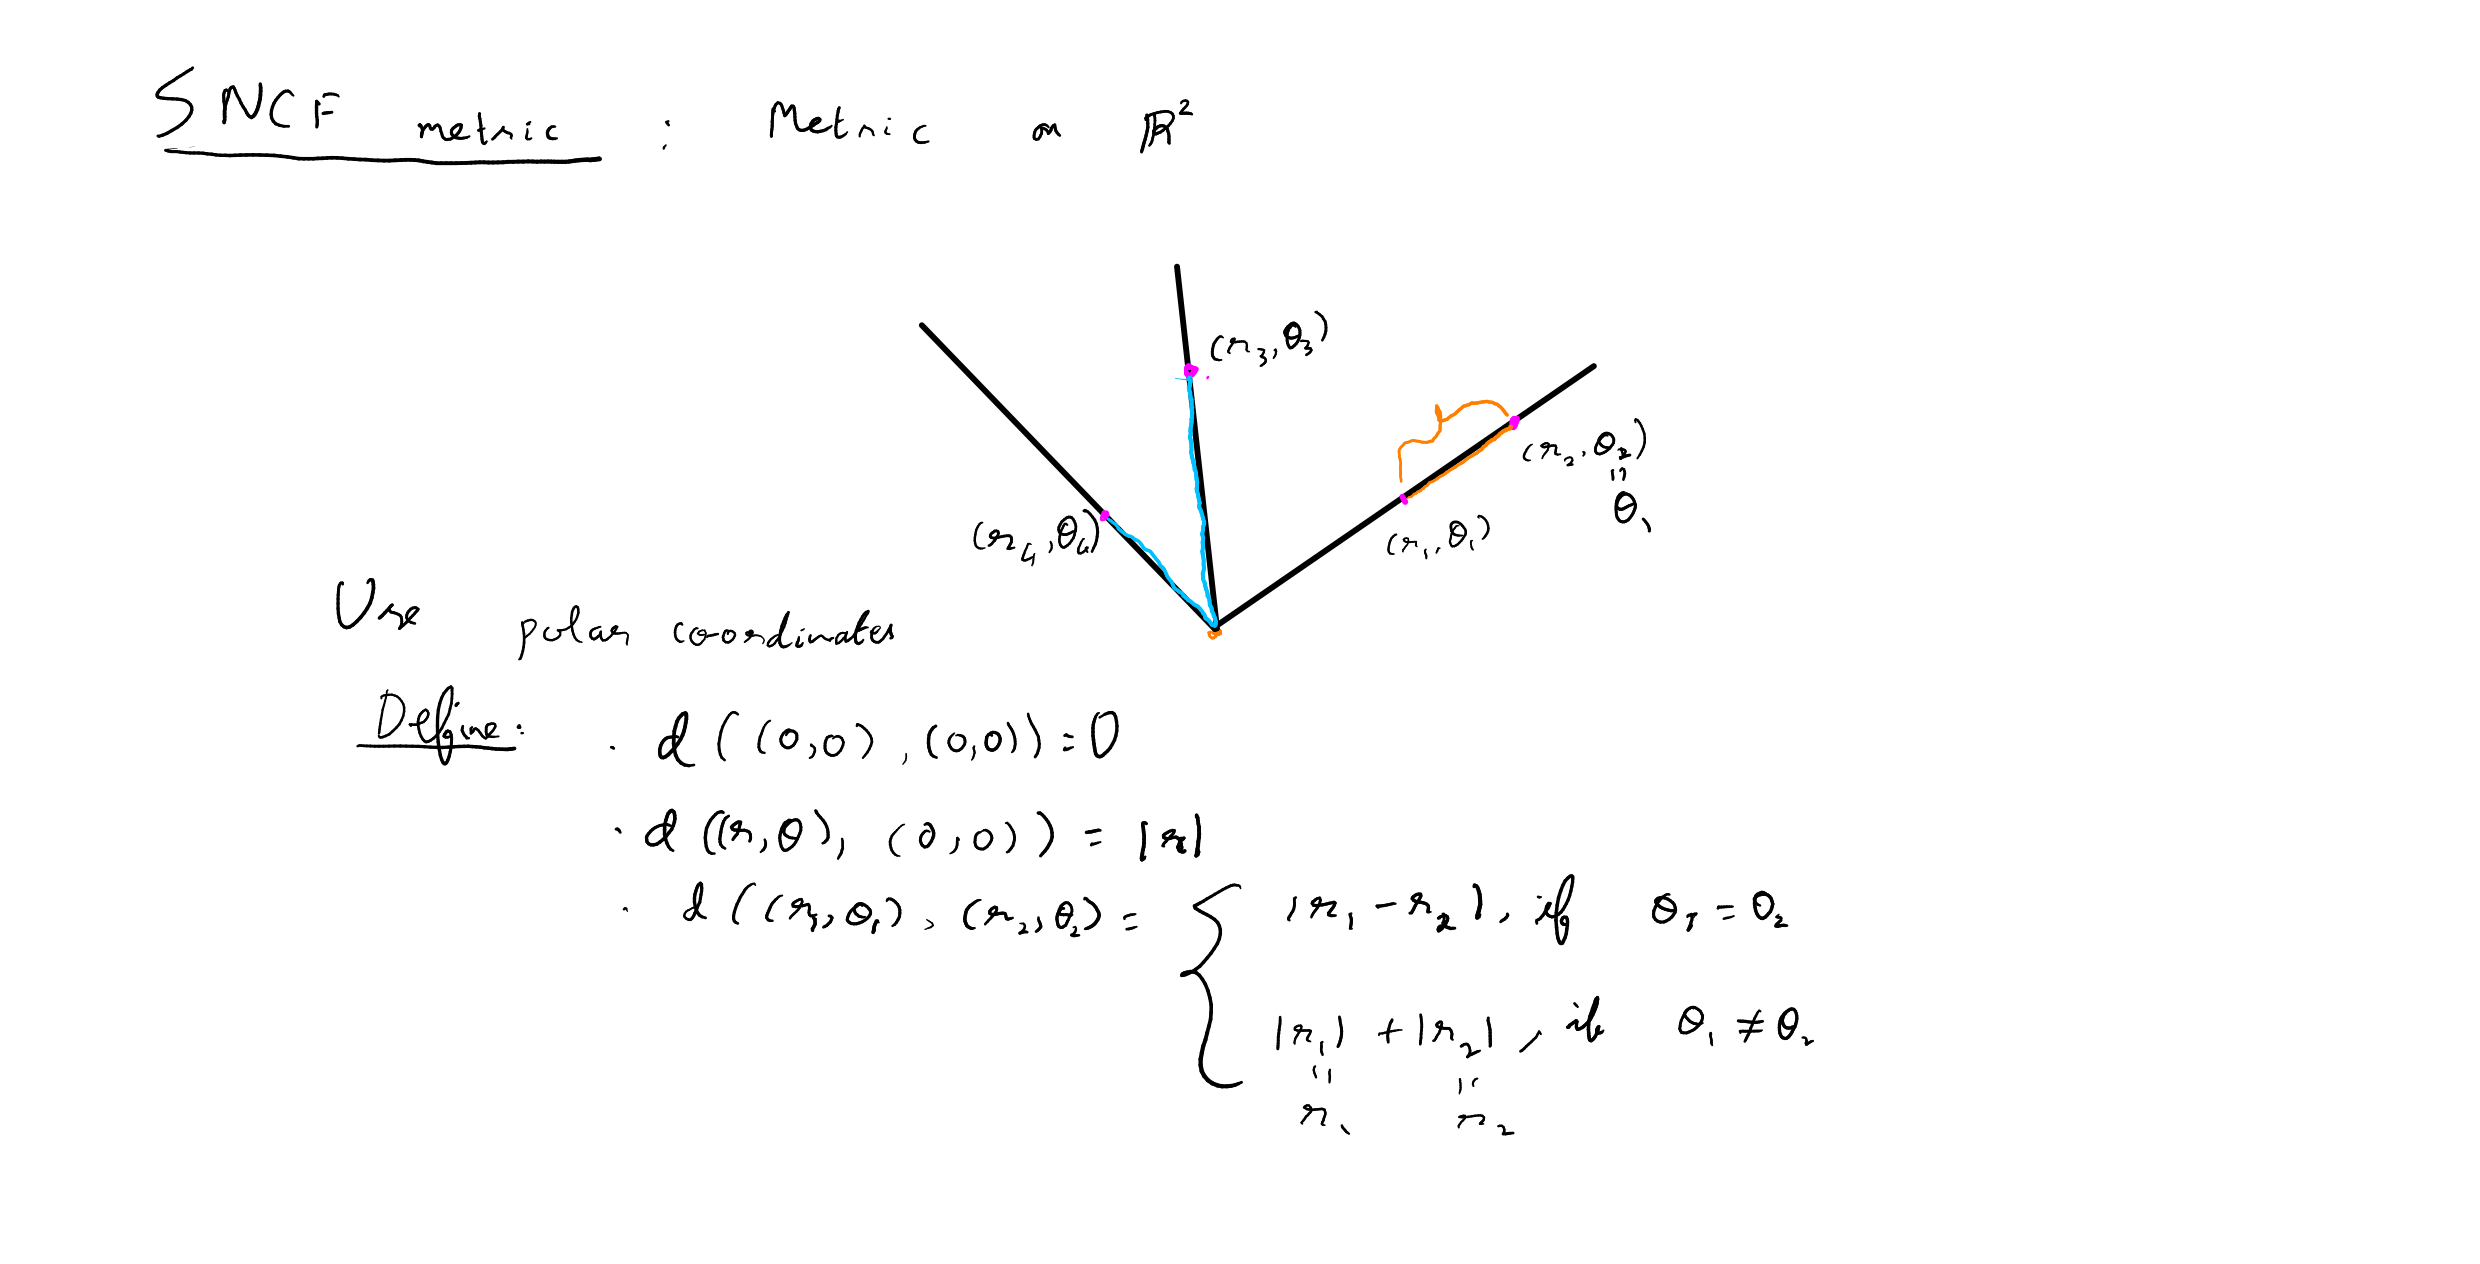 SNCF metric : Metric on ℝ²
(r₃, θ₃)
(r₂, θ₂)
=
θ₁
(r₁, θ₁)
(r₄, θ₄)
Use polar coordinates
Define:
· d((0,0), (0,0)) = 0
· d((r,θ), (0,0)) = |r|
· d((r₁,θ₁), (r₂,θ₂) = { |r₁ - r₂|, if θ₁ = θ₂
|r₁| + |r₂|, if θ₁ ≠ θ₂
= =
r₁ r₂